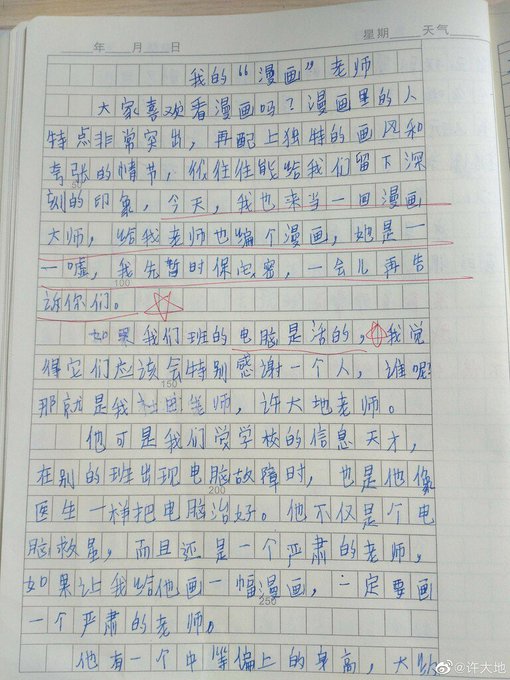 年 月 日 星期 天气
我的“漫画”老师
大家喜欢看漫画吗？漫画里的人
特点非常突出，再配上独特的画风和
夸张的情节，往往能给我们留下深
刻的印象，今天，我也来当一回漫画
大师，给我老师也编个漫画，她是一
一嘘，我先暂时保密，一会儿再告
诉你们。
100
如果我们班的电脑是活的，我觉
得它们应该会特别感谢一个人，谁呢？
150
那就是我老师，许大地老师。
他可是我们学校的信息天才，
在别的班出现电脑故障时，也是他像
200
医生一样把电脑治好。他不仅是个电
脑救星，而且还是一个严肃的老师，
如果让我给他画一幅漫画，一定要画
250
一个严肃的老师。
他有一个中等偏上的身高，大
@许大地